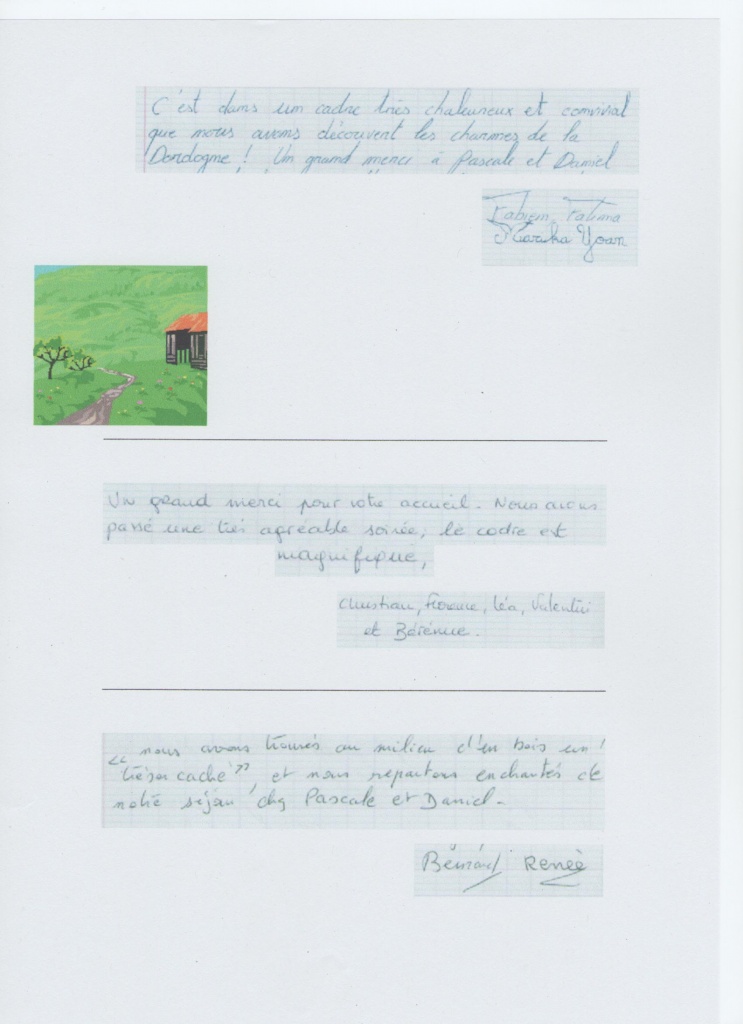 C'est dans un cadre très chaleureux et convivial
que nous avons découvert les charmes de la
Dordogne ! Un grand merci à Pascale et Daniel
Fabien Fatima
Marika Yoan
Un grand merci pour votre accueil. Nous avons
passé une très agréable soirée, le cadre est
magnifique,
Christian, Florence, Léa, Valentin
et Bérénice.
nous avons trouvés au milieu d'un bois un
"trésor caché", et nous repartons enchantés de
notre séjour chez Pascale et Daniel.
Bernard Renée